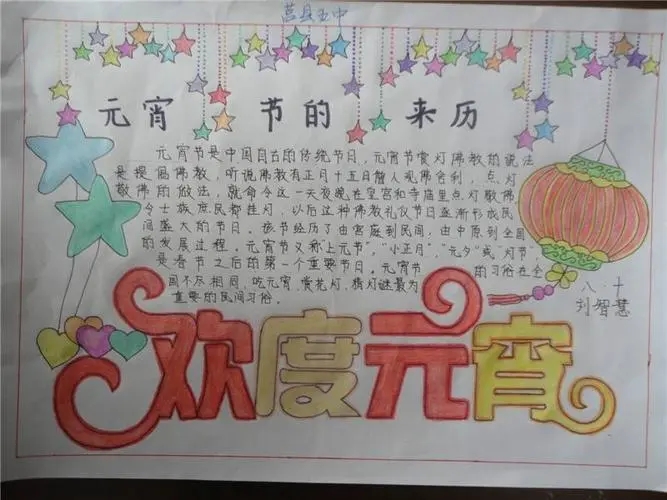 莒县五中
元宵节的来历
元宵节是中国自古的传统节日,元宵节赏灯佛教的说法
是提倡佛教,听说佛教有正月十五日僧人观佛舍利,点灯
敬佛的做法,就命令这一天夜晚在皇宫和寺庙里点灯敬佛
令士族庶民都挂灯,以后这种佛教礼仪节日逐渐形成民
间盛大的节日。该节经历了由宫庭到民间,由中原到全国
的发展过程。元宵节又称“上元节”,“小正月”,“元夕”或“灯节”,
是春节之后的第一个重要节日。元宵节 的习俗在全
国不尽相同,吃元宵、赏花灯,猜灯谜最为
重要的民间习俗。
八·十
刘智慧
欢度元宵